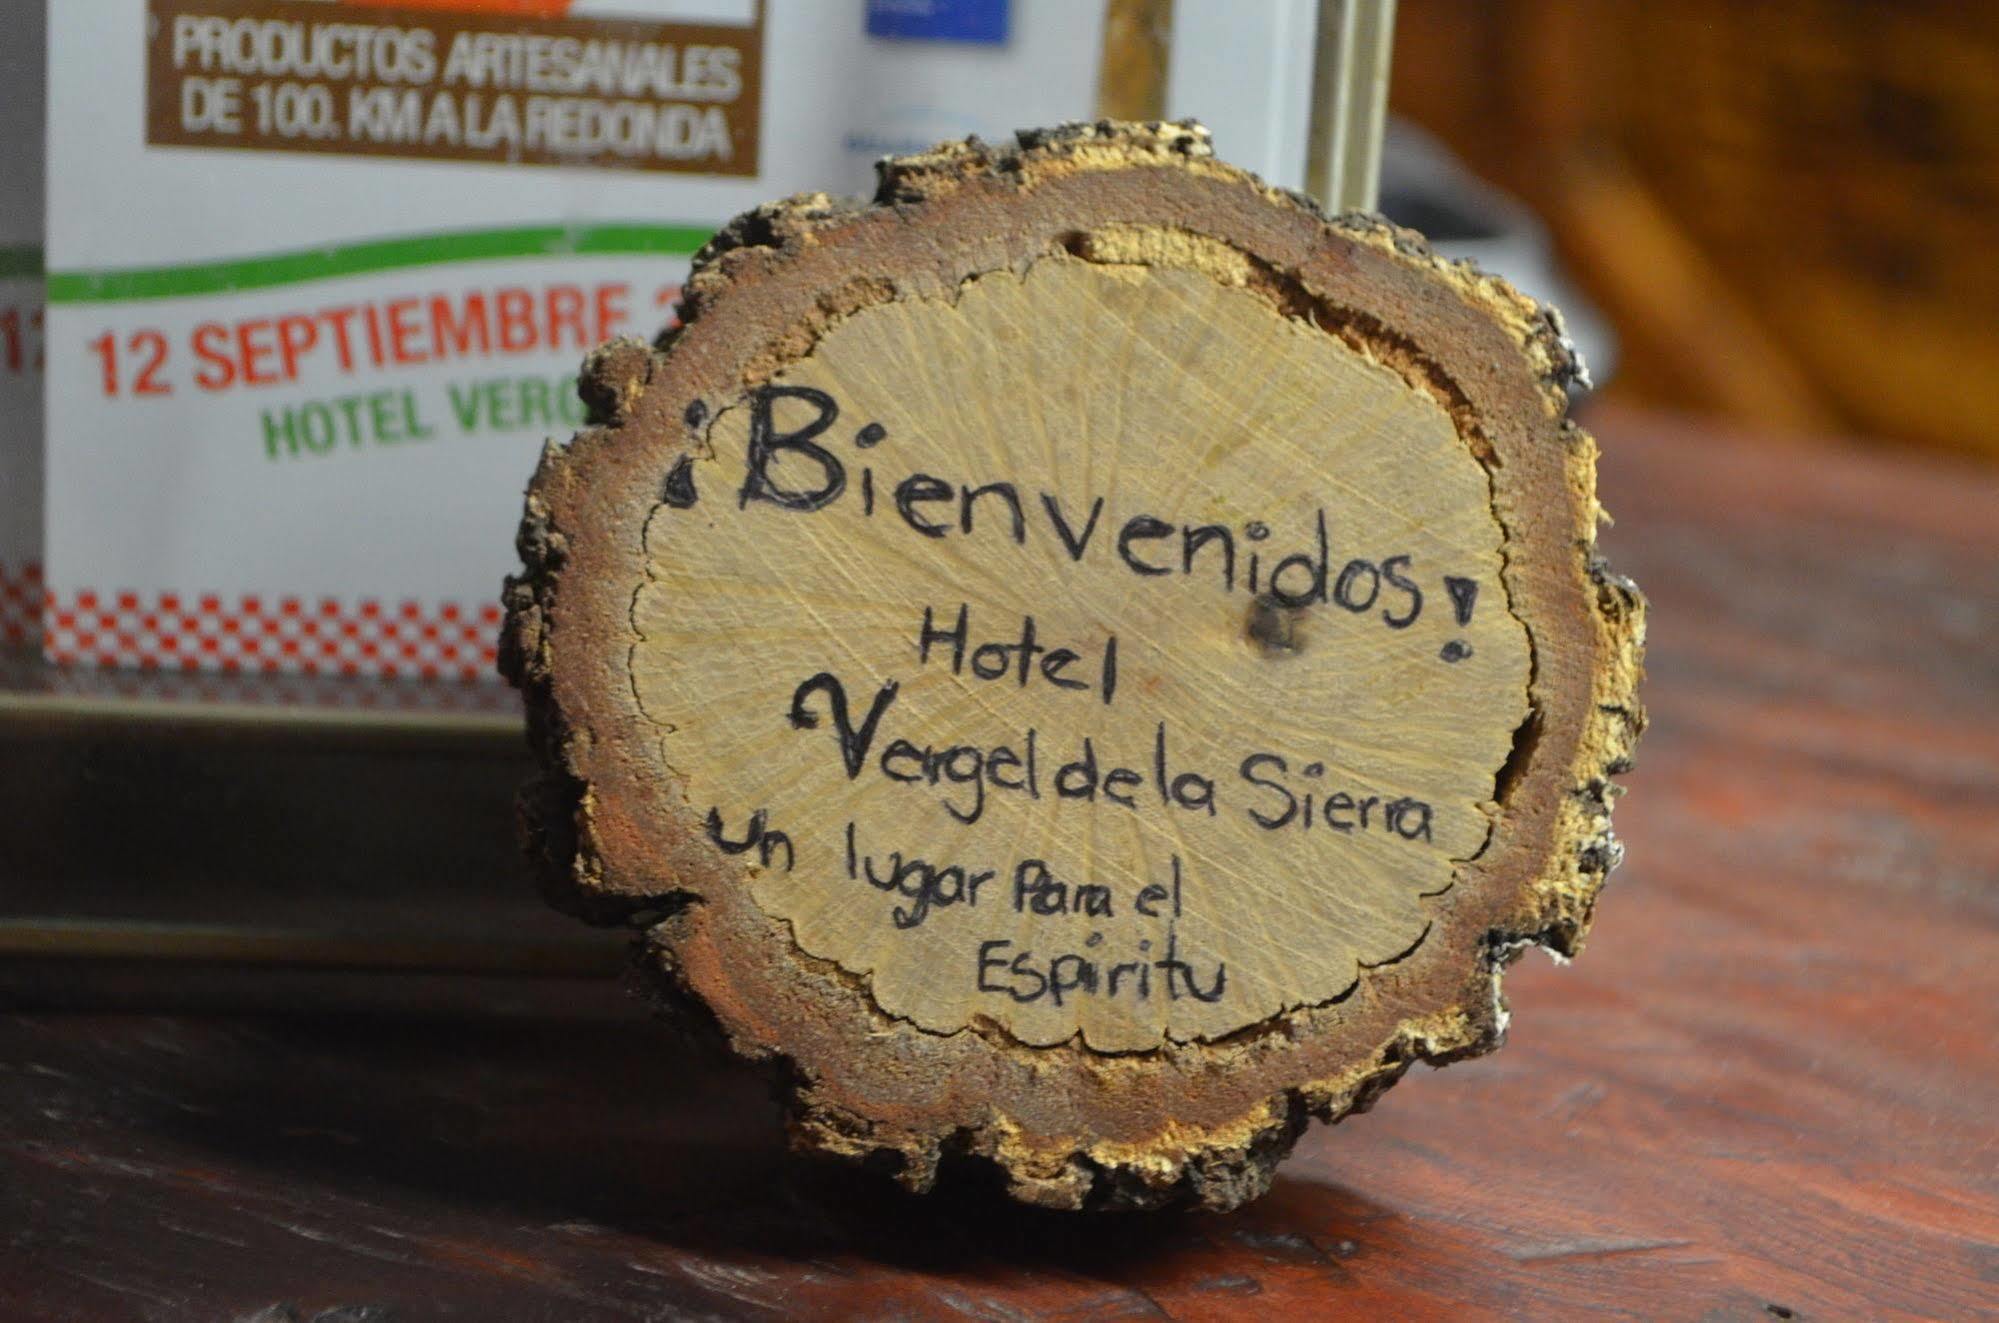 PRODUCTOS ARTESANALES
DE 100. KM A LA REDONDA
12 SEPTIEMBRE
HOTEL
¡Bienvenidos!
Hotel
Vergel de la Sierra
un lugar Para el
Espíritu